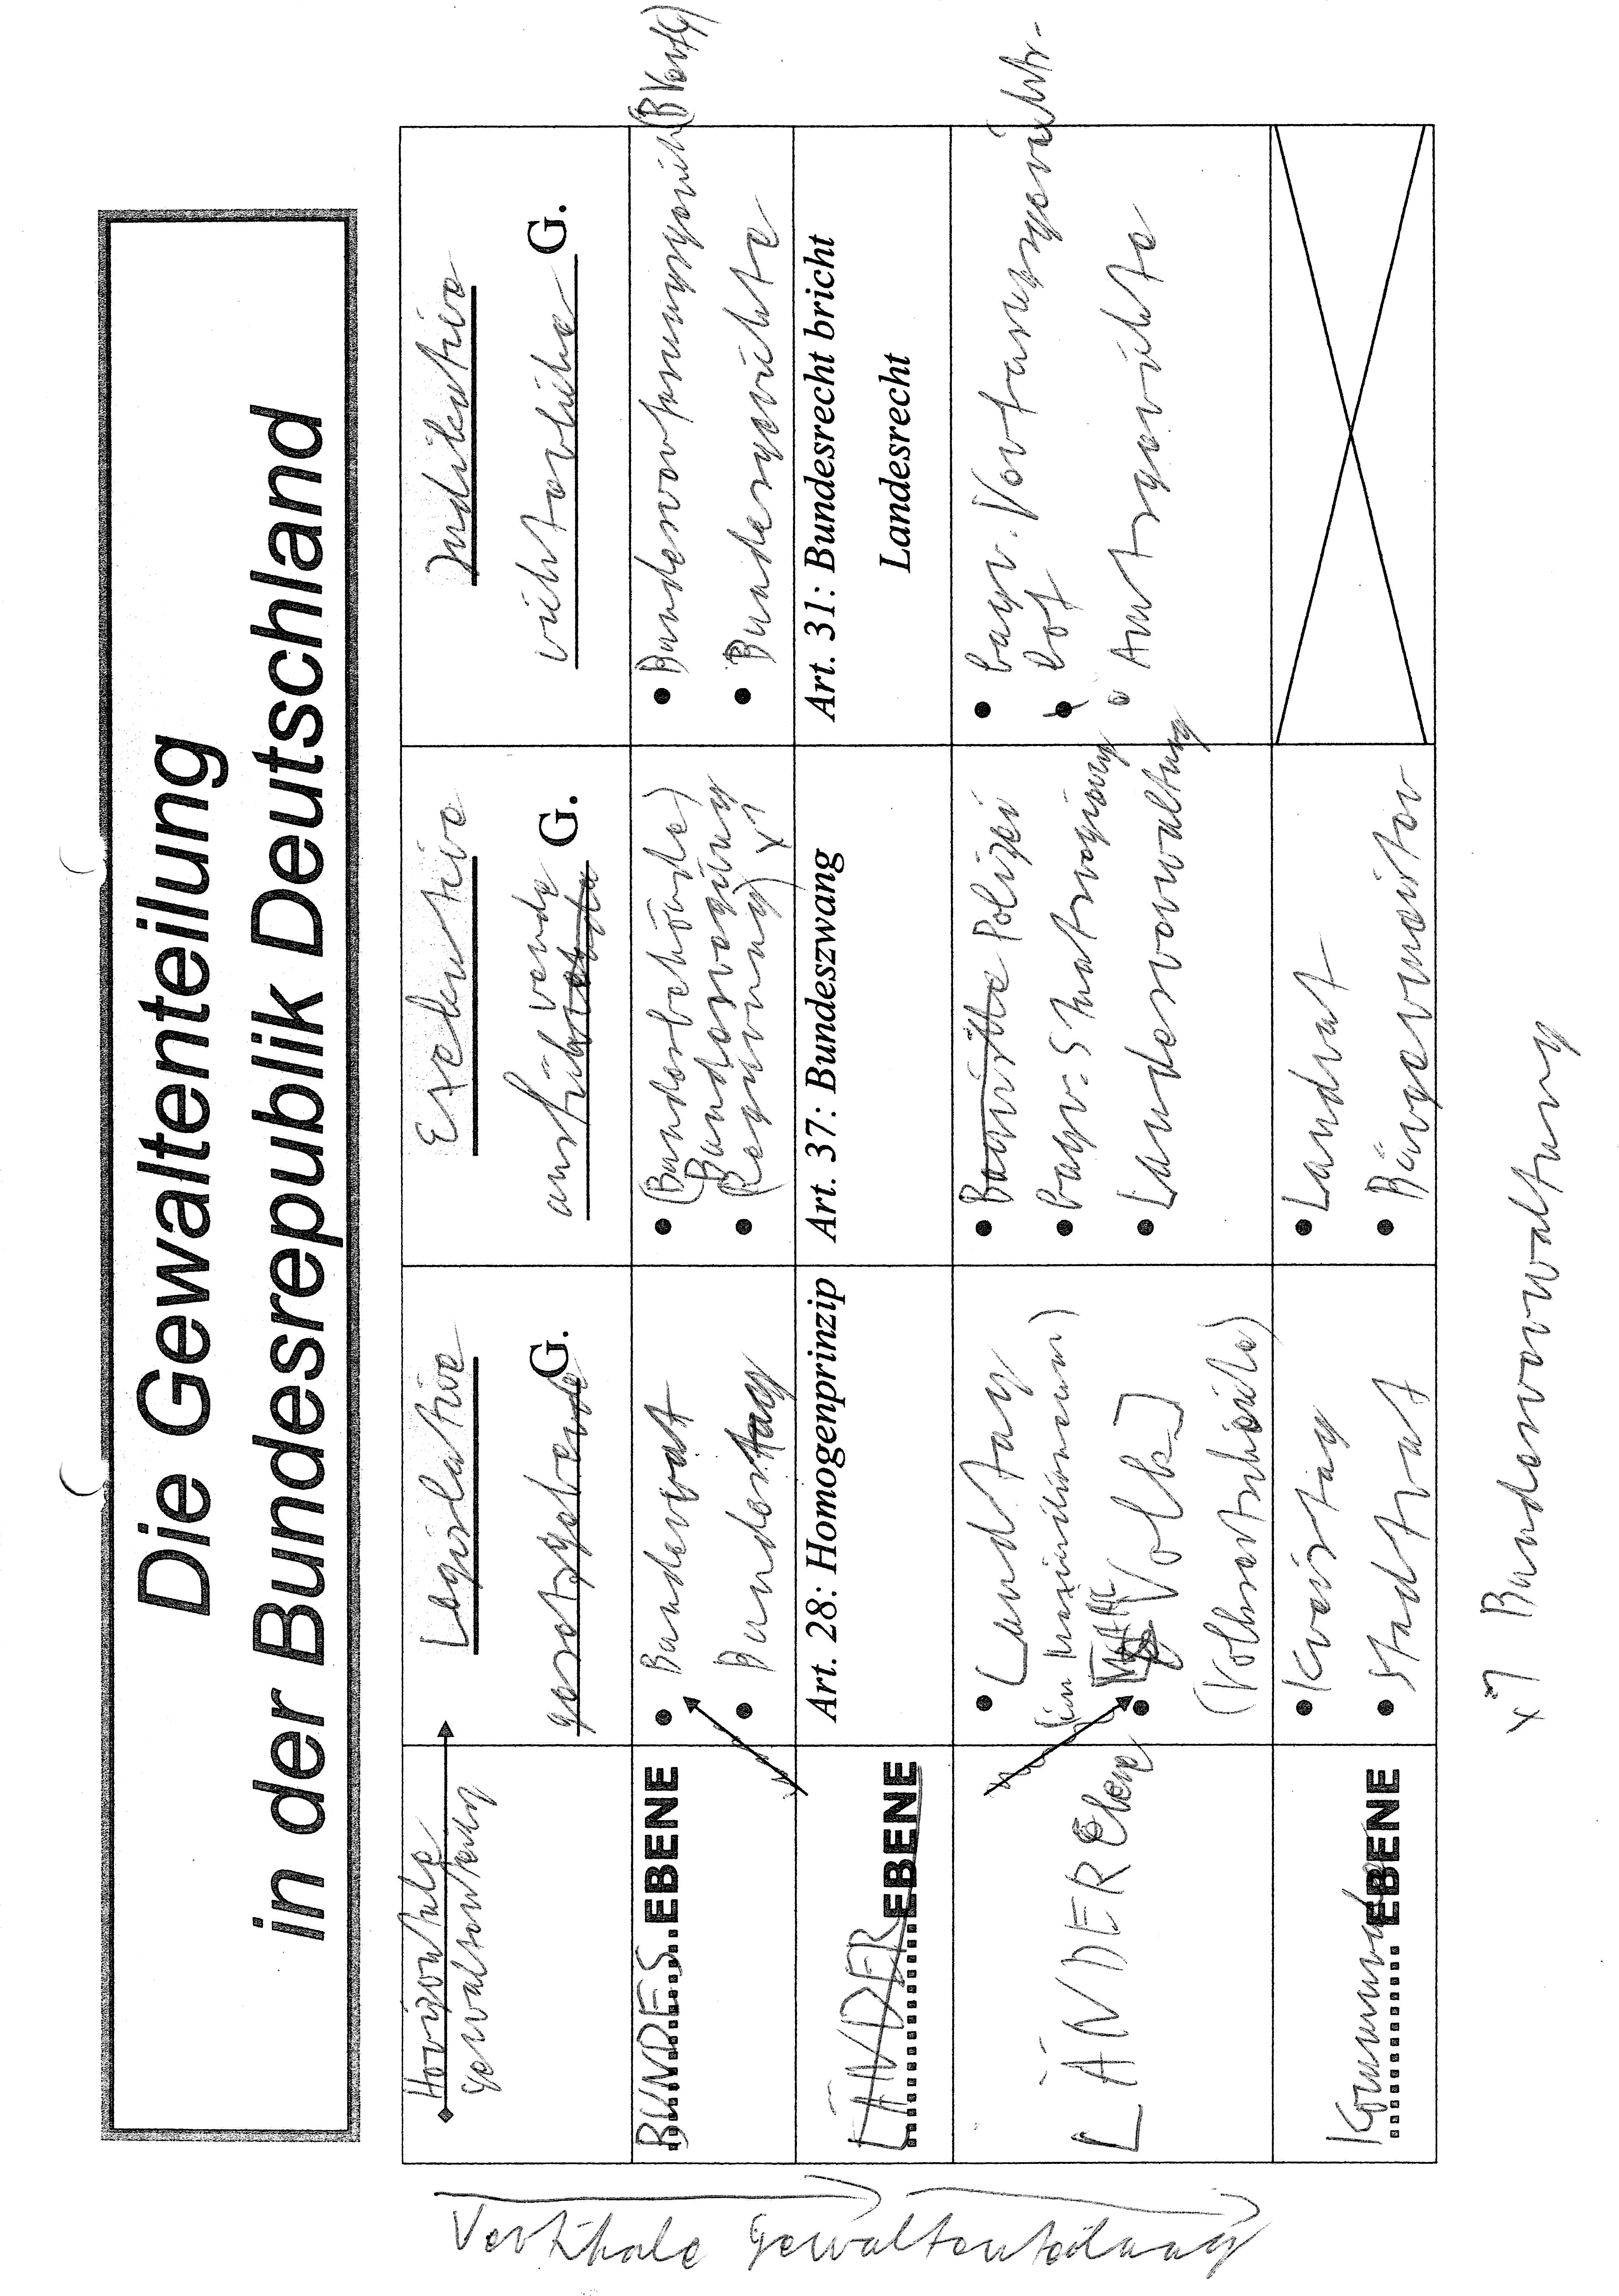 Die Gewaltenteilung
in der Bundesrepublik Deutschland
Horizontale
Gewaltenteilg
Legislative
gesetzgebende G.
Exekutive
ausführende G.
Judikative
richterliche G.
BUNDES EBENE
• Bundesrat
• Bundestag
• (Bundesbehörde)
Bundesregierung
• Regierung) x1
• Bundesverfassungsgericht (BVerfG)
• Bundesgerichte
LÄNDER EBENE
Art. 28: Homogenprinzip
Art. 37: Bundeszwang
Art. 31: Bundesrecht bricht
Landesrecht
LÄNDER Ebene
• Landtag
(im Maximilianeum)
• Volk]
(Volksentscheide)
• Beamte Polizei
• bayr. Staatsregierung
• Landesverwaltung
• bayr. Verfassungsgerichts-
hof
• Amtsgerichte
Kommunal EBENE
• Kreistag
• Stadtrat
• Landrat
• Bürgermeister
Vertikale Gewaltenteilung
x1 Bundesverwaltung